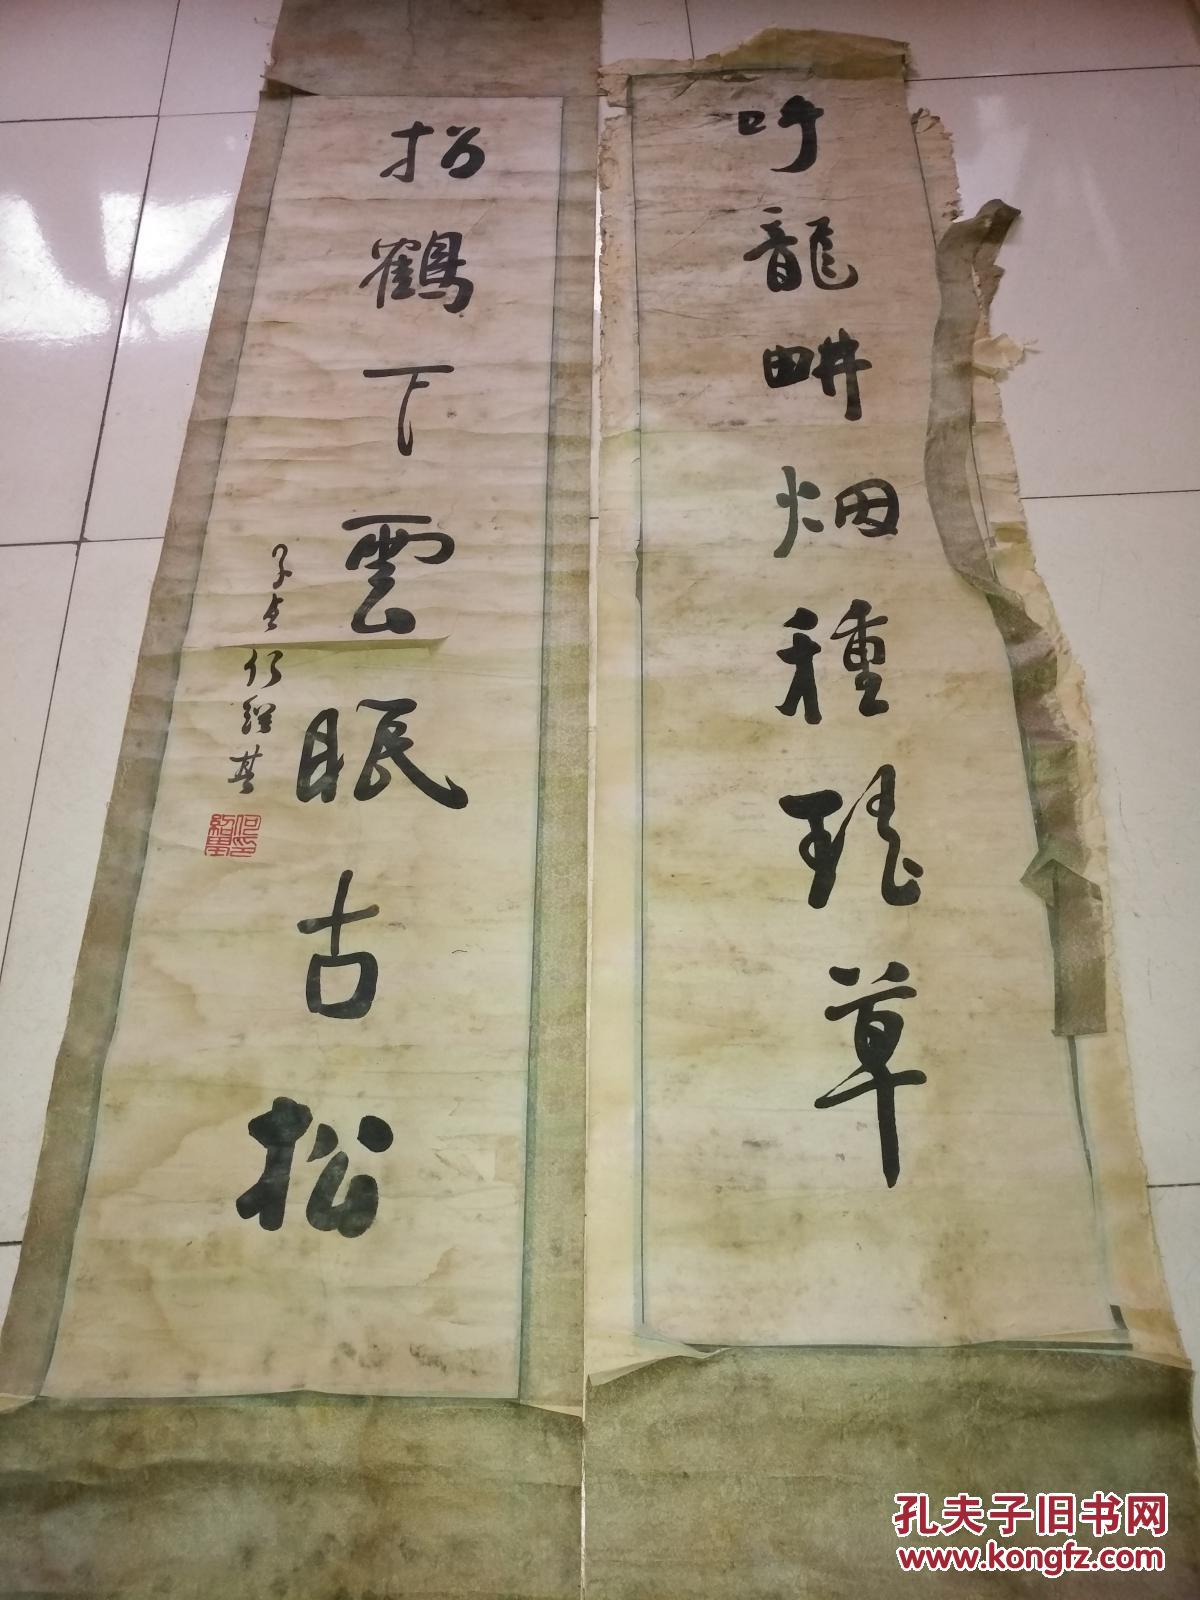 呼龍畊烟種瑤草
招鶴下雲眠古松
子貞何紹基
何紹基印
孔夫子旧书网
www.kongfz.com